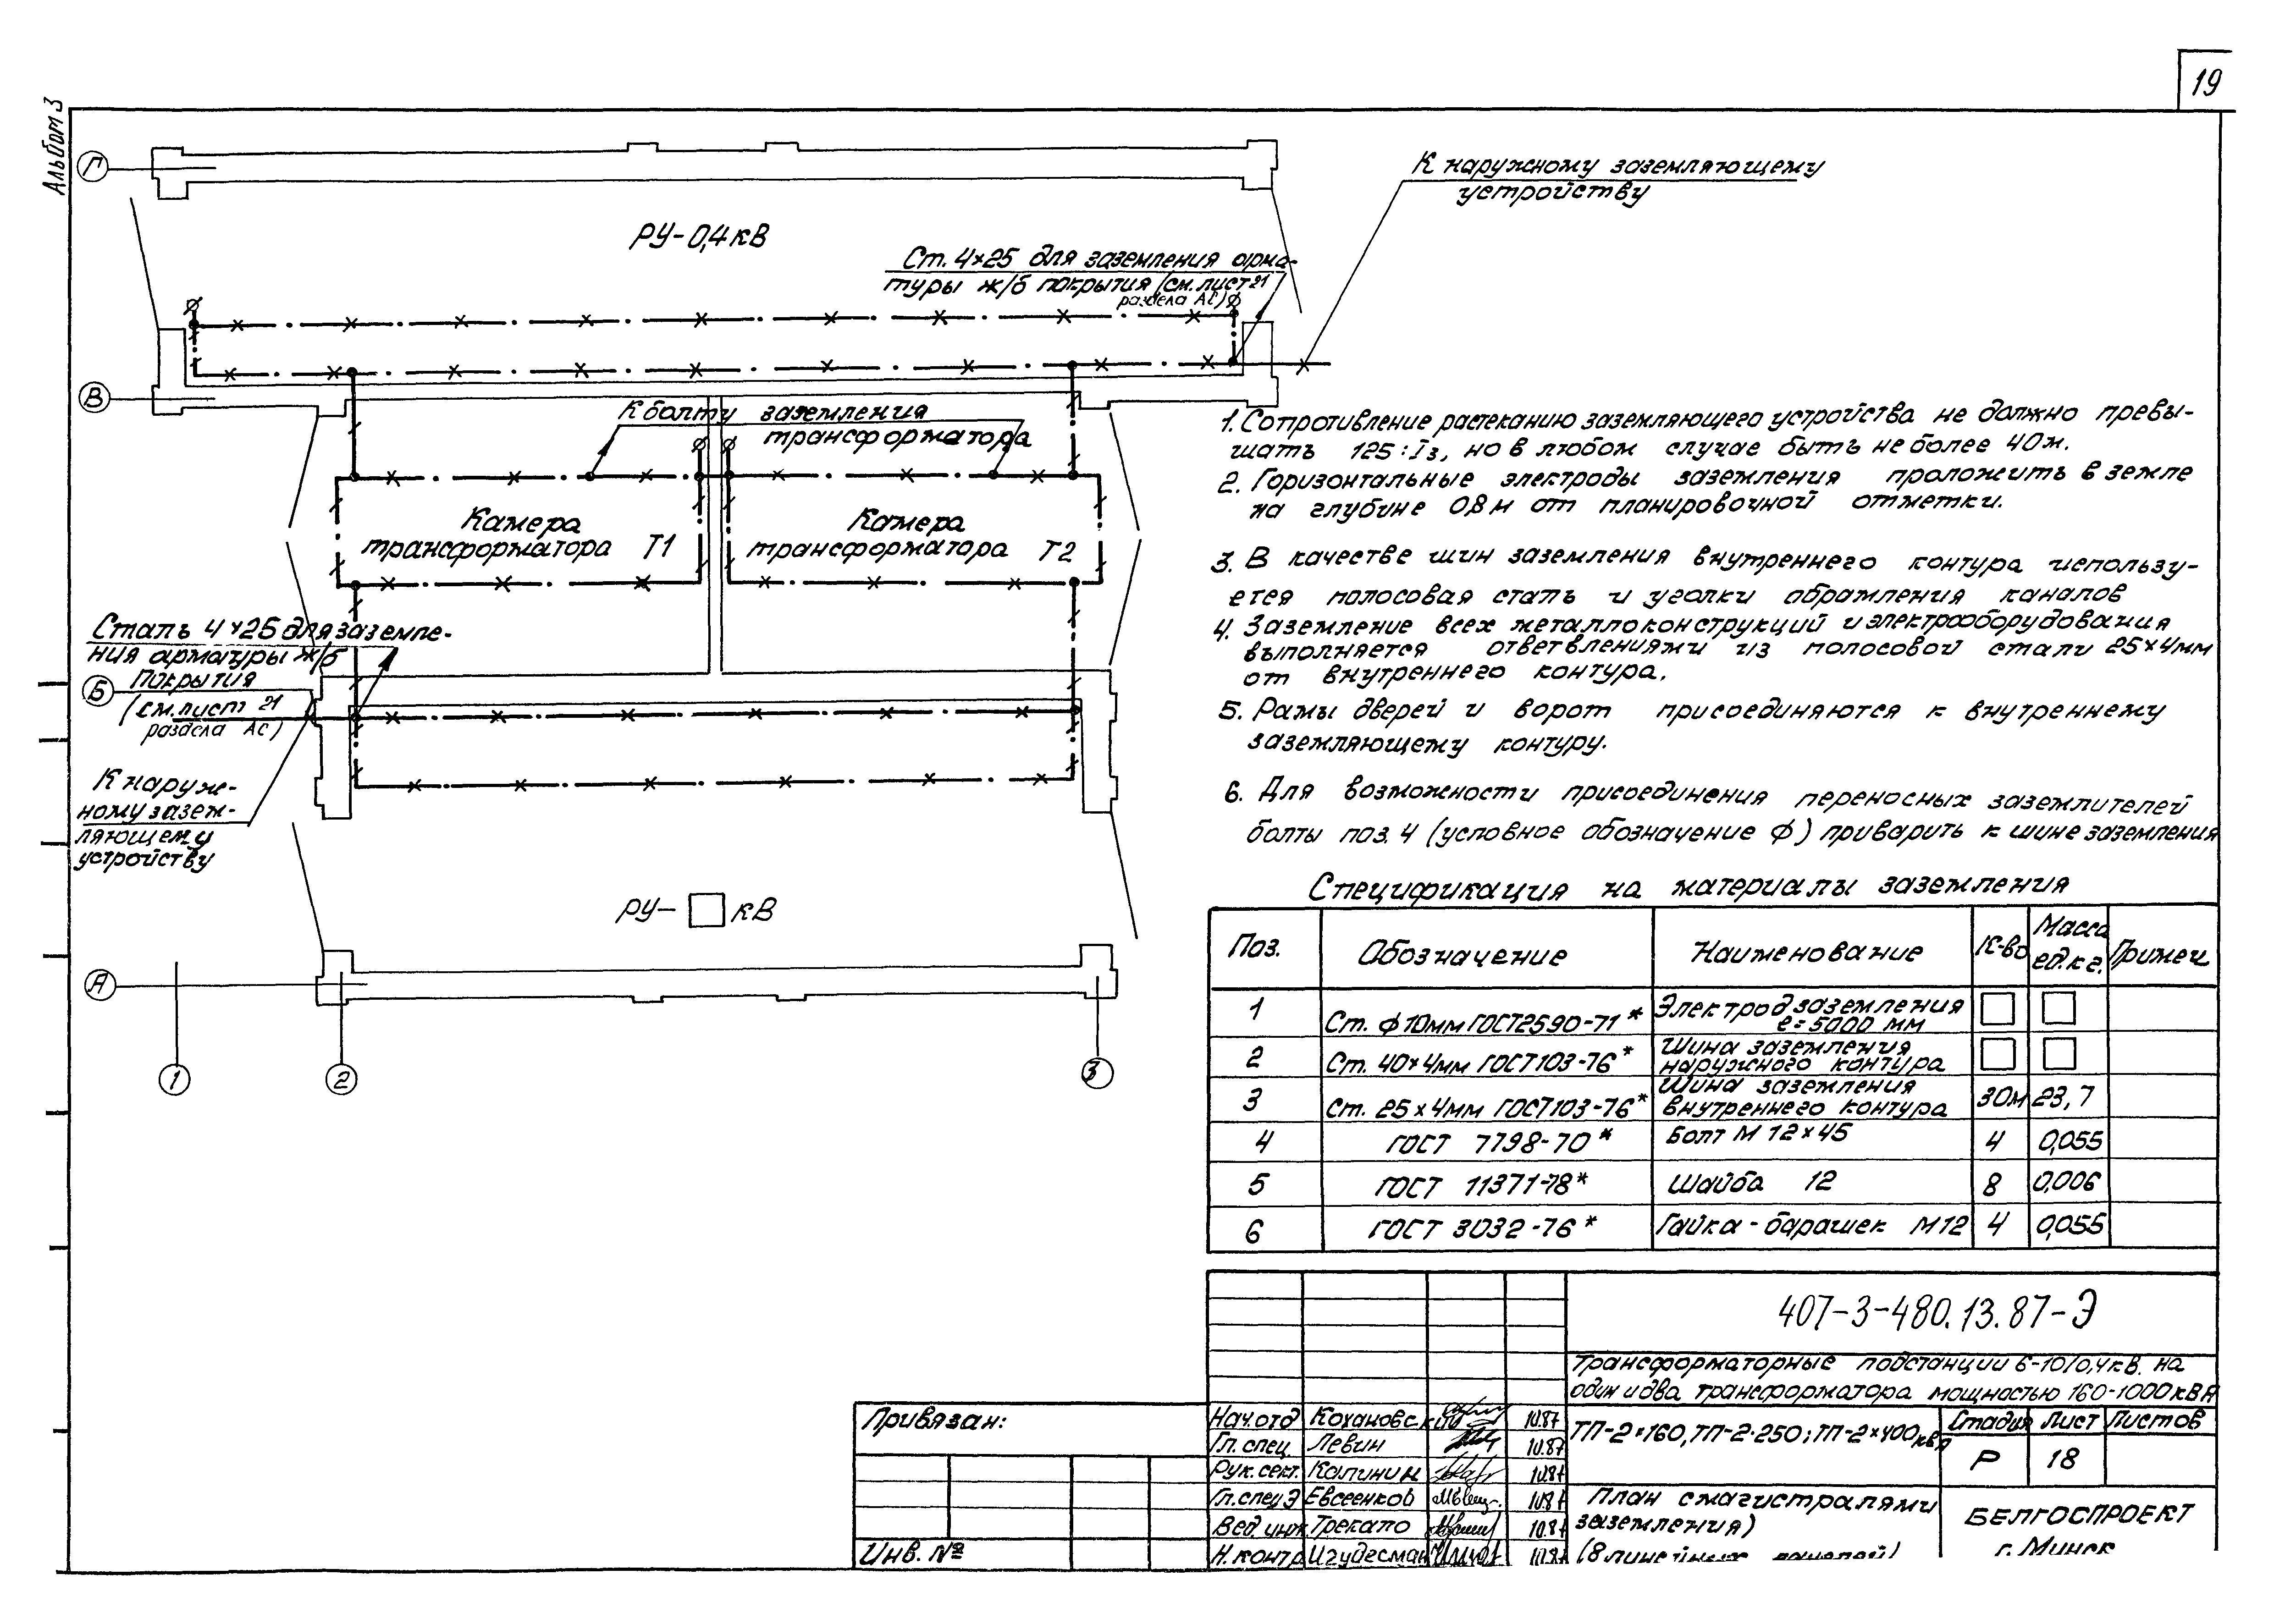 19
Альбом 3
Г
РУ-0,4 кВ
К наружному заземляющему
устройству
Ст. 4×25 для заземления арма-
туры ж/б покрытия (см. лист 21
раздела АС)
В
К болту заземления
трансформатора
Камера
трансформатора Т1
Камера
трансформатора Т2
Сталь 4×25 для заземле-
ния арматуры ж/б
Покрытия
(см. лист 21
раздела АС)
Б
К наруж-
ному зазем-
ляющему
устройству
РУ- □ кВ
А
1
2
3
1. Сопротивление растеканию заземляющего устройства не должно превы-
шать 125:Iз, но в любом случае быть не более 4Ом.
2. Горизонтальные электроды заземления проложить в земле
на глубине 0,8 м от планировочной отметки.
3. В качестве шин заземления внутреннего контура использу-
ется полосовая сталь и уголки обрамления каналов
4. Заземление всех металлоконструкций и электрооборудования
выполняется ответвлениями из полосовой стали 25×4мм
от внутреннего контура.
5. Рамы дверей и ворот присоединяются к внутреннему
заземляющему контуру.
6. Для возможности присоединения переносных заземлителей
болты поз. 4 (условное обозначение ϕ) приварить к шине заземления
Спецификация на материалы заземления
Поз. Обозначение Наименование К-во Масса ед. кг. Примеч
1 Ст. ϕ10мм ГОСТ2590-71* Электрод заземления
ℓ=5000 мм □ □
2 Ст. 40×4мм ГОСТ103-76* Шина заземления
наружного контура □ □
3 Ст. 25×4мм ГОСТ103-76* Шина заземления
внутреннего контура 30м 23,7
4 ГОСТ 7798-70* Болт М 12×45 4 0,055
5 ГОСТ 11371-78* Шайба 12 8 0,006
6 ГОСТ 3032-76* Гайка-барашек М12 4 0,055
407-3-480.13.87-Э
Трансформаторные подстанции 6-10/0,4кВ. на
один и два трансформатора мощностью 160-1000кВА
Привязан:
Инв. №
Нач.отд Кохановский 10.87
Гл. спец. Левин 10.87
Рук. сект. Калинин 10.87
Гл. спец Э Евсеенков 10.87
Вед. инж. Трекало 10.87
Н. контр Игудесман 10.87
ТП-2×160, ТП-2×250; ТП-2×400 кВА
Стадия Лист Листов
Р 18
План с магистралями
заземления)
(8 линейных панелей)
БЕЛГОСПРОЕКТ
г. Минск